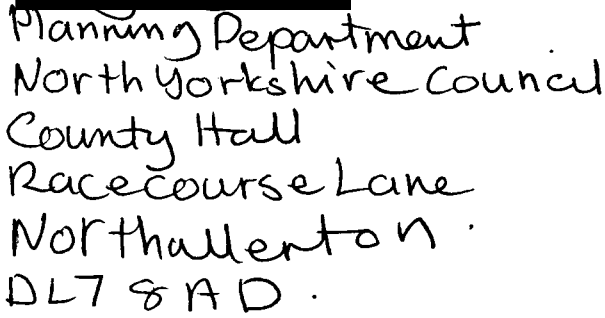 Planning Department
North Yorkshire Council
County Hall
Racecourse Lane
Northallerton.
DL7 8AD.